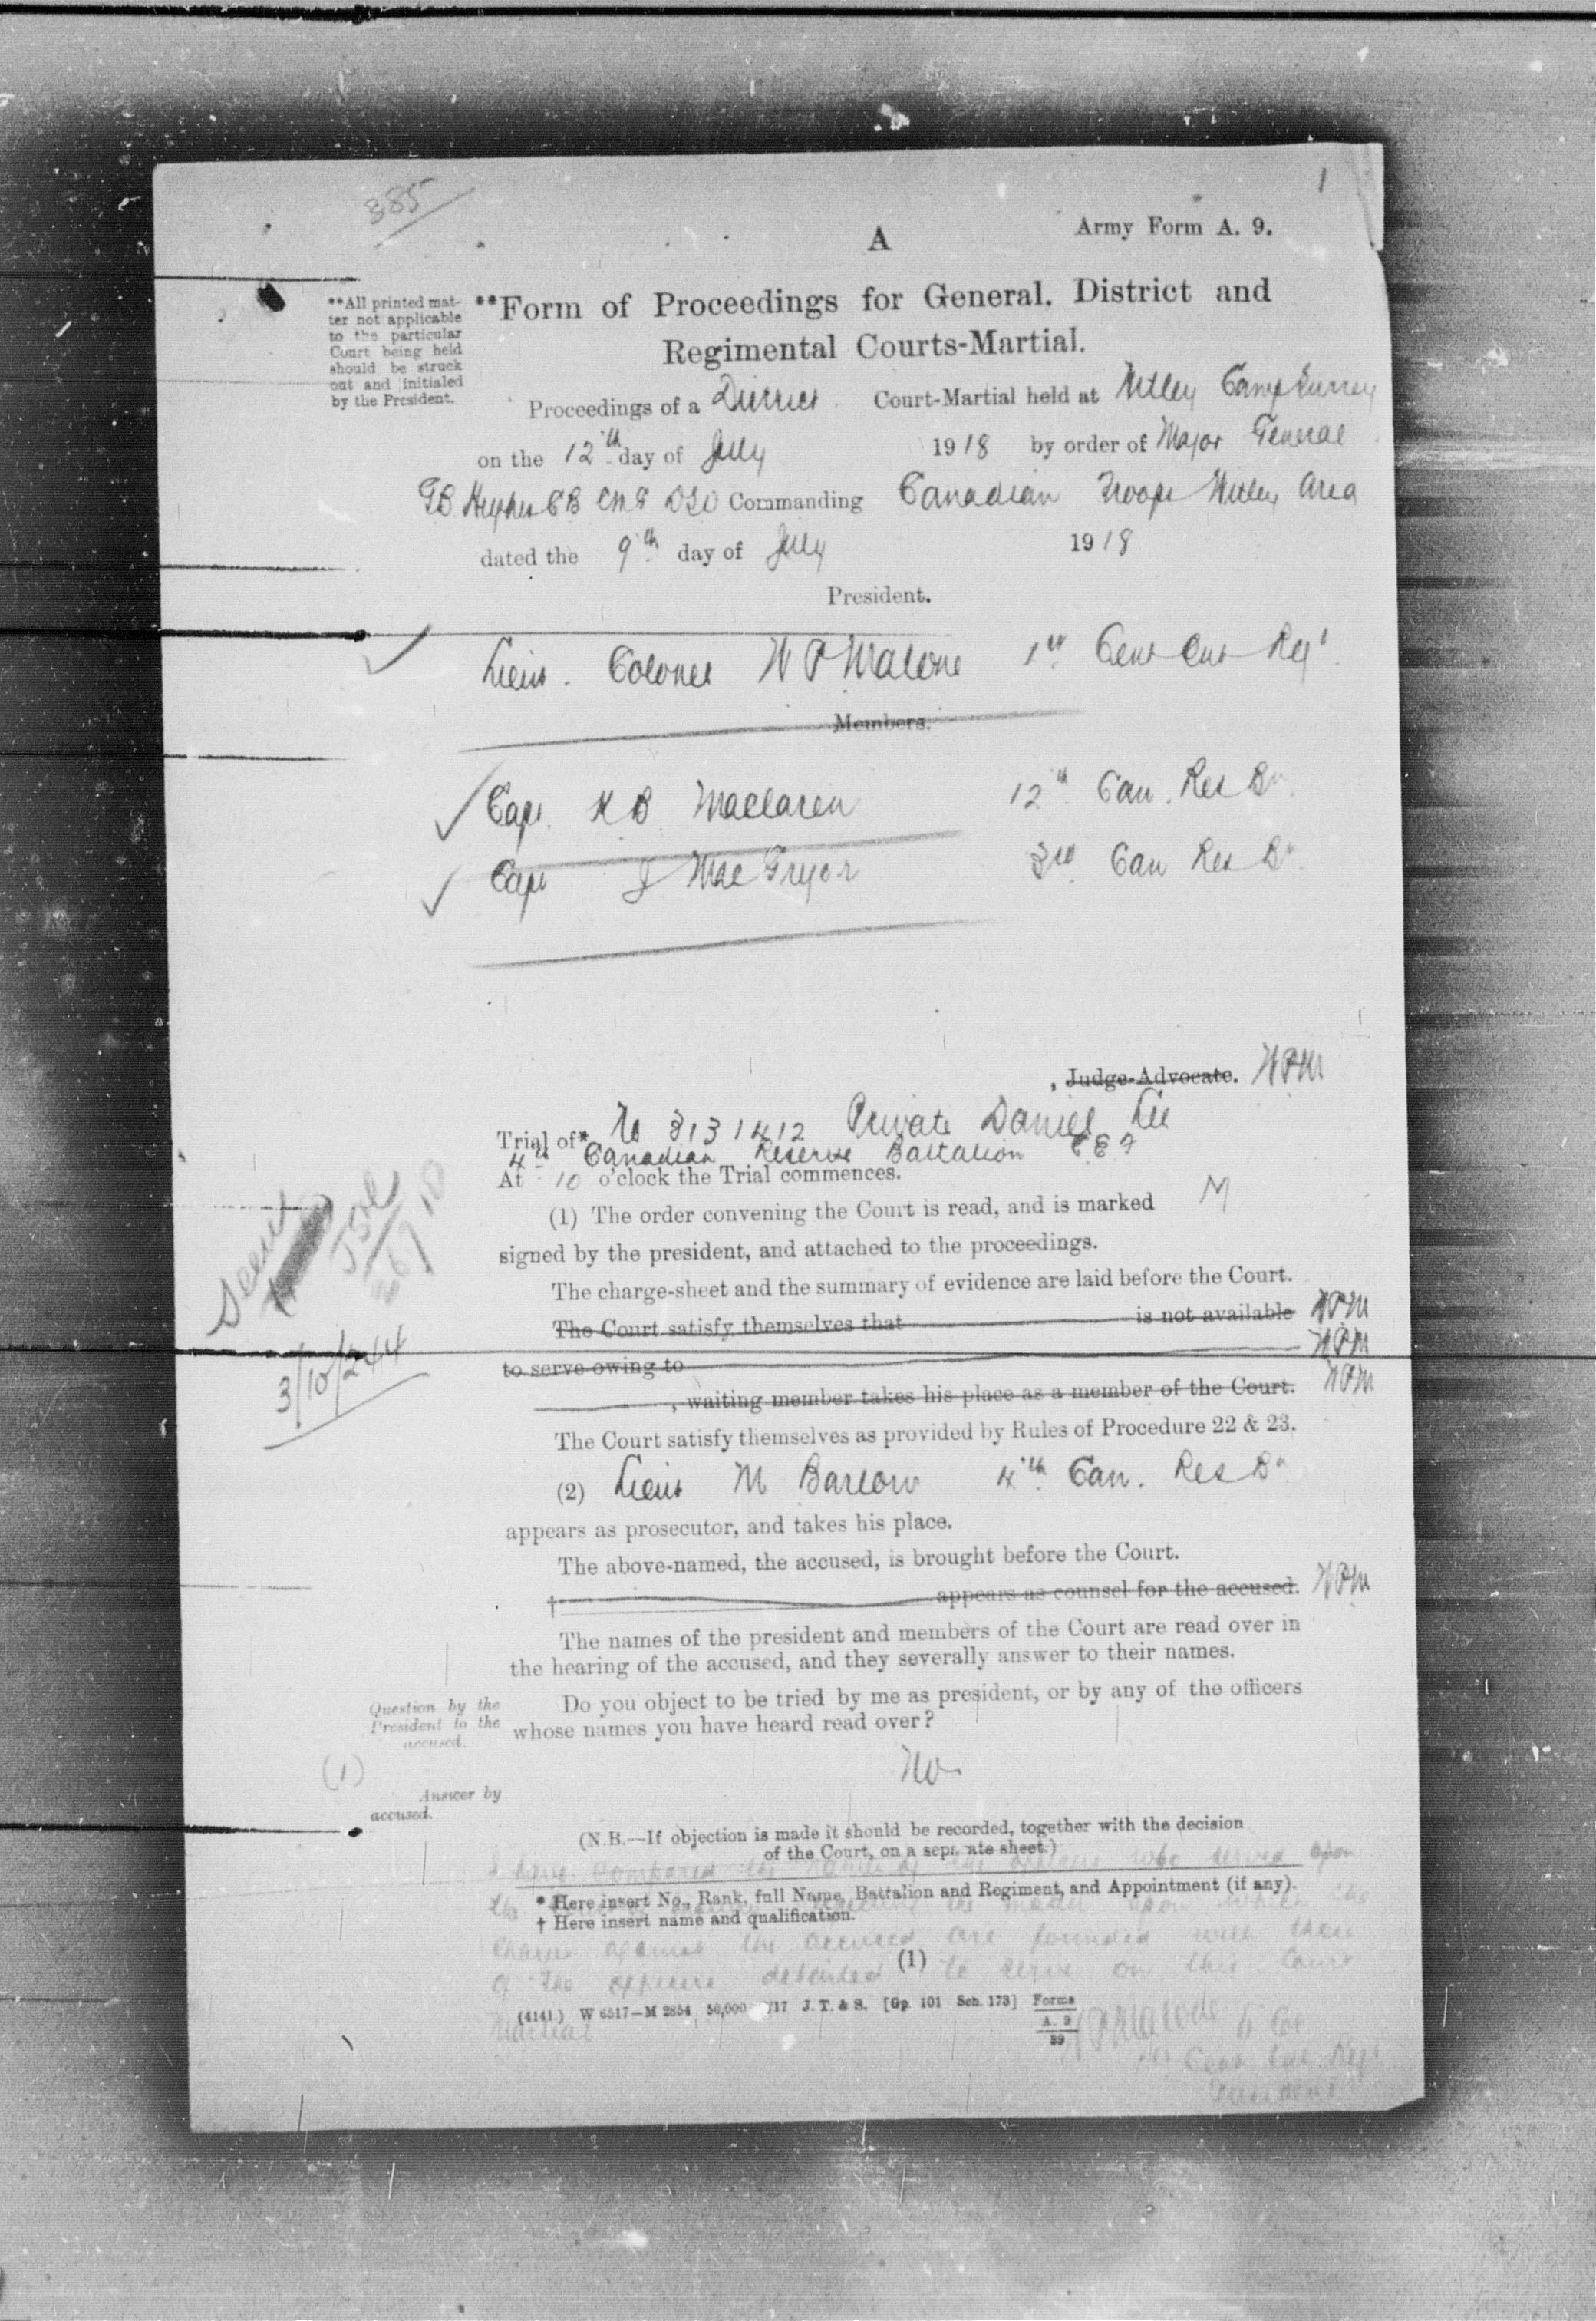 385
1
A
Army Form A. 9.
**All printed mat-
ter not applicable
to the particular
Court being held
should be struck
out and initialed
by the President.
**Form of Proceedings for General, District and
Regimental Courts-Martial.
Proceedings of a District Court-Martial held at Witley Camp Surrey
on the 12th day of July 1918 by order of Major General
GB Hughes CB CMG DSO Commanding Canadian Troops Witley Area
dated the 9th day of July 1918
President.
Lieut. Colonel W P Malone 1st Cent Ont Regt
Members.
Capt. K B Maclaren 12th Can. Res Bn.
Capt J MacGregor 3rd Can Res Bn.
, Judge-Advocate. WPM
Trial of* No 3131412 Private Daniel Lee
4th Canadian Reserve Battalion C E F
At 10 o'clock the Trial commences.
(1) The order convening the Court is read, and is marked M
signed by the president, and attached to the proceedings.
The charge-sheet and the summary of evidence are laid before the Court.
The Court satisfy themselves that is not available WPM
to serve owing to WPM
, waiting member takes his place as a member of the Court. WPM
Seen
3/10/244
The Court satisfy themselves as provided by Rules of Procedure 22 & 23.
(2) Lieut M Barlow 4th Can. Res Bn
appears as prosecutor, and takes his place.
The above-named, the accused, is brought before the Court.
† appears as counsel for the accused. WPM
The names of the president and members of the Court are read over in
the hearing of the accused, and they severally answer to their names.
Question by the
President to the
accused.
Do you object to be tried by me as president, or by any of the officers
whose names you have heard read over?
(1)
No
Answer by
accused.
(N.B.—If objection is made it should be recorded, together with the decision
of the Court, on a separate sheet.)
I have compared the of the officers who served upon
* Here insert No., Rank, full Name, Battalion and Regiment, and Appointment (if any).
† Here insert name and qualification.
charges against the accused are founded with those
(1)
of the officers detailed to serve on this Court
(4141.) W 6517—M 2854 50,000 /17 J. T. & S. [Gp. 101 Sch. 173] Forms
A. 9
39
Martial
WPMalone Lt Col
1st Cent Ont Regt
President